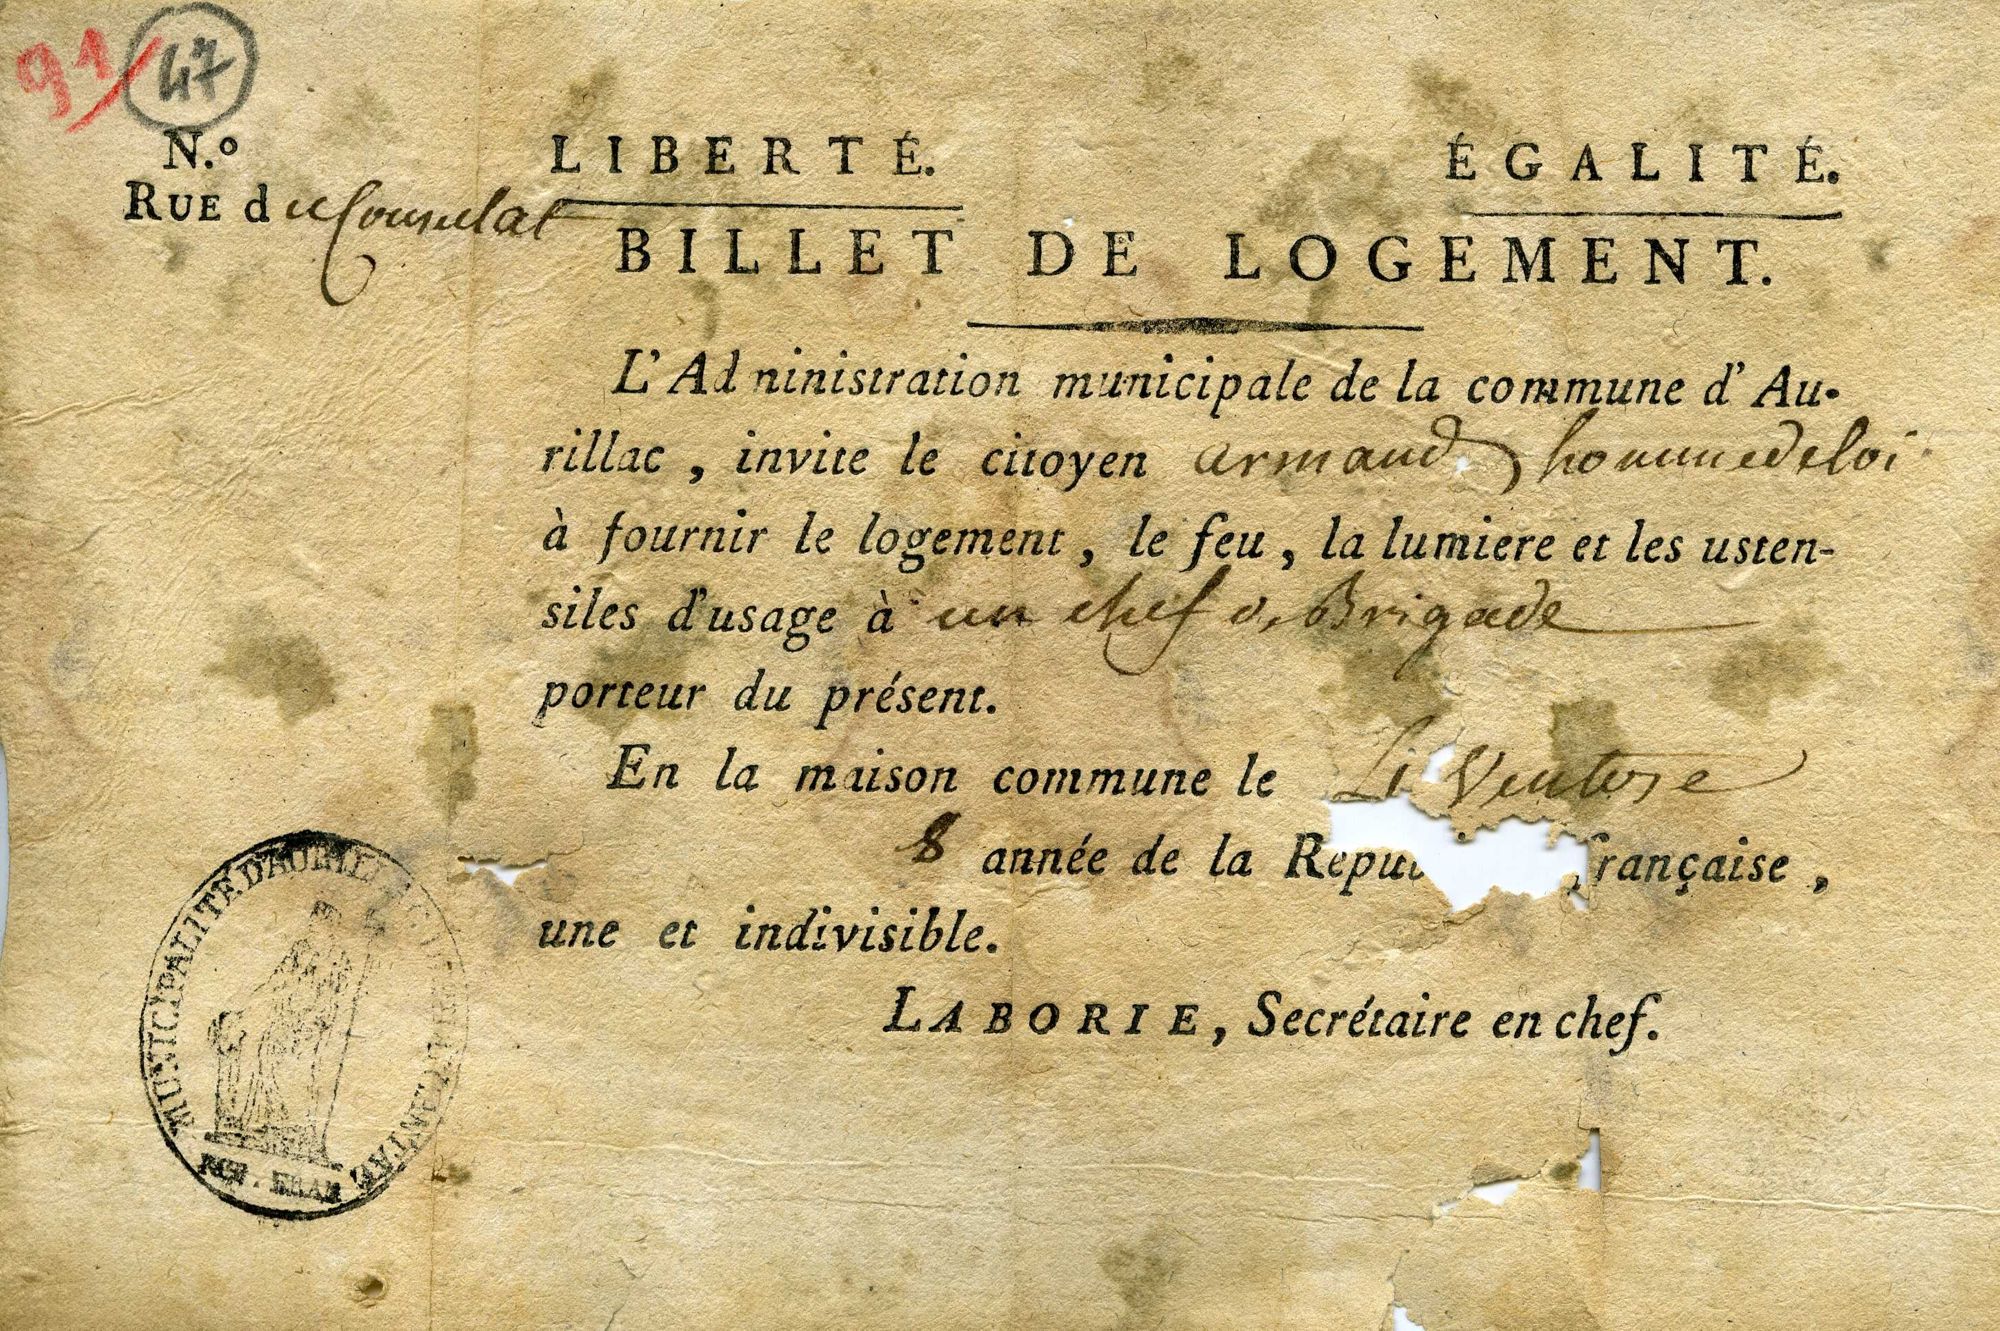 91/ 47
N.o
RUE du Consulat
LIBERTÉ. ÉGALITÉ.
BILLET DE LOGEMENT.
L'Adninistration municipale de la commune d'Au-
rillac, invite le citoyen armand hommedeloi
à fournir le logement, le feu, la lumiere et les usten-
siles d'usage à un chef de Brigade
porteur du présent.
En la maison commune le Ventose
8 année de la Répu française,
une et indivisible.
LABORIE, Secrétaire en chef.
MUNICIPALITÉ D'AURILLAC
FRAN